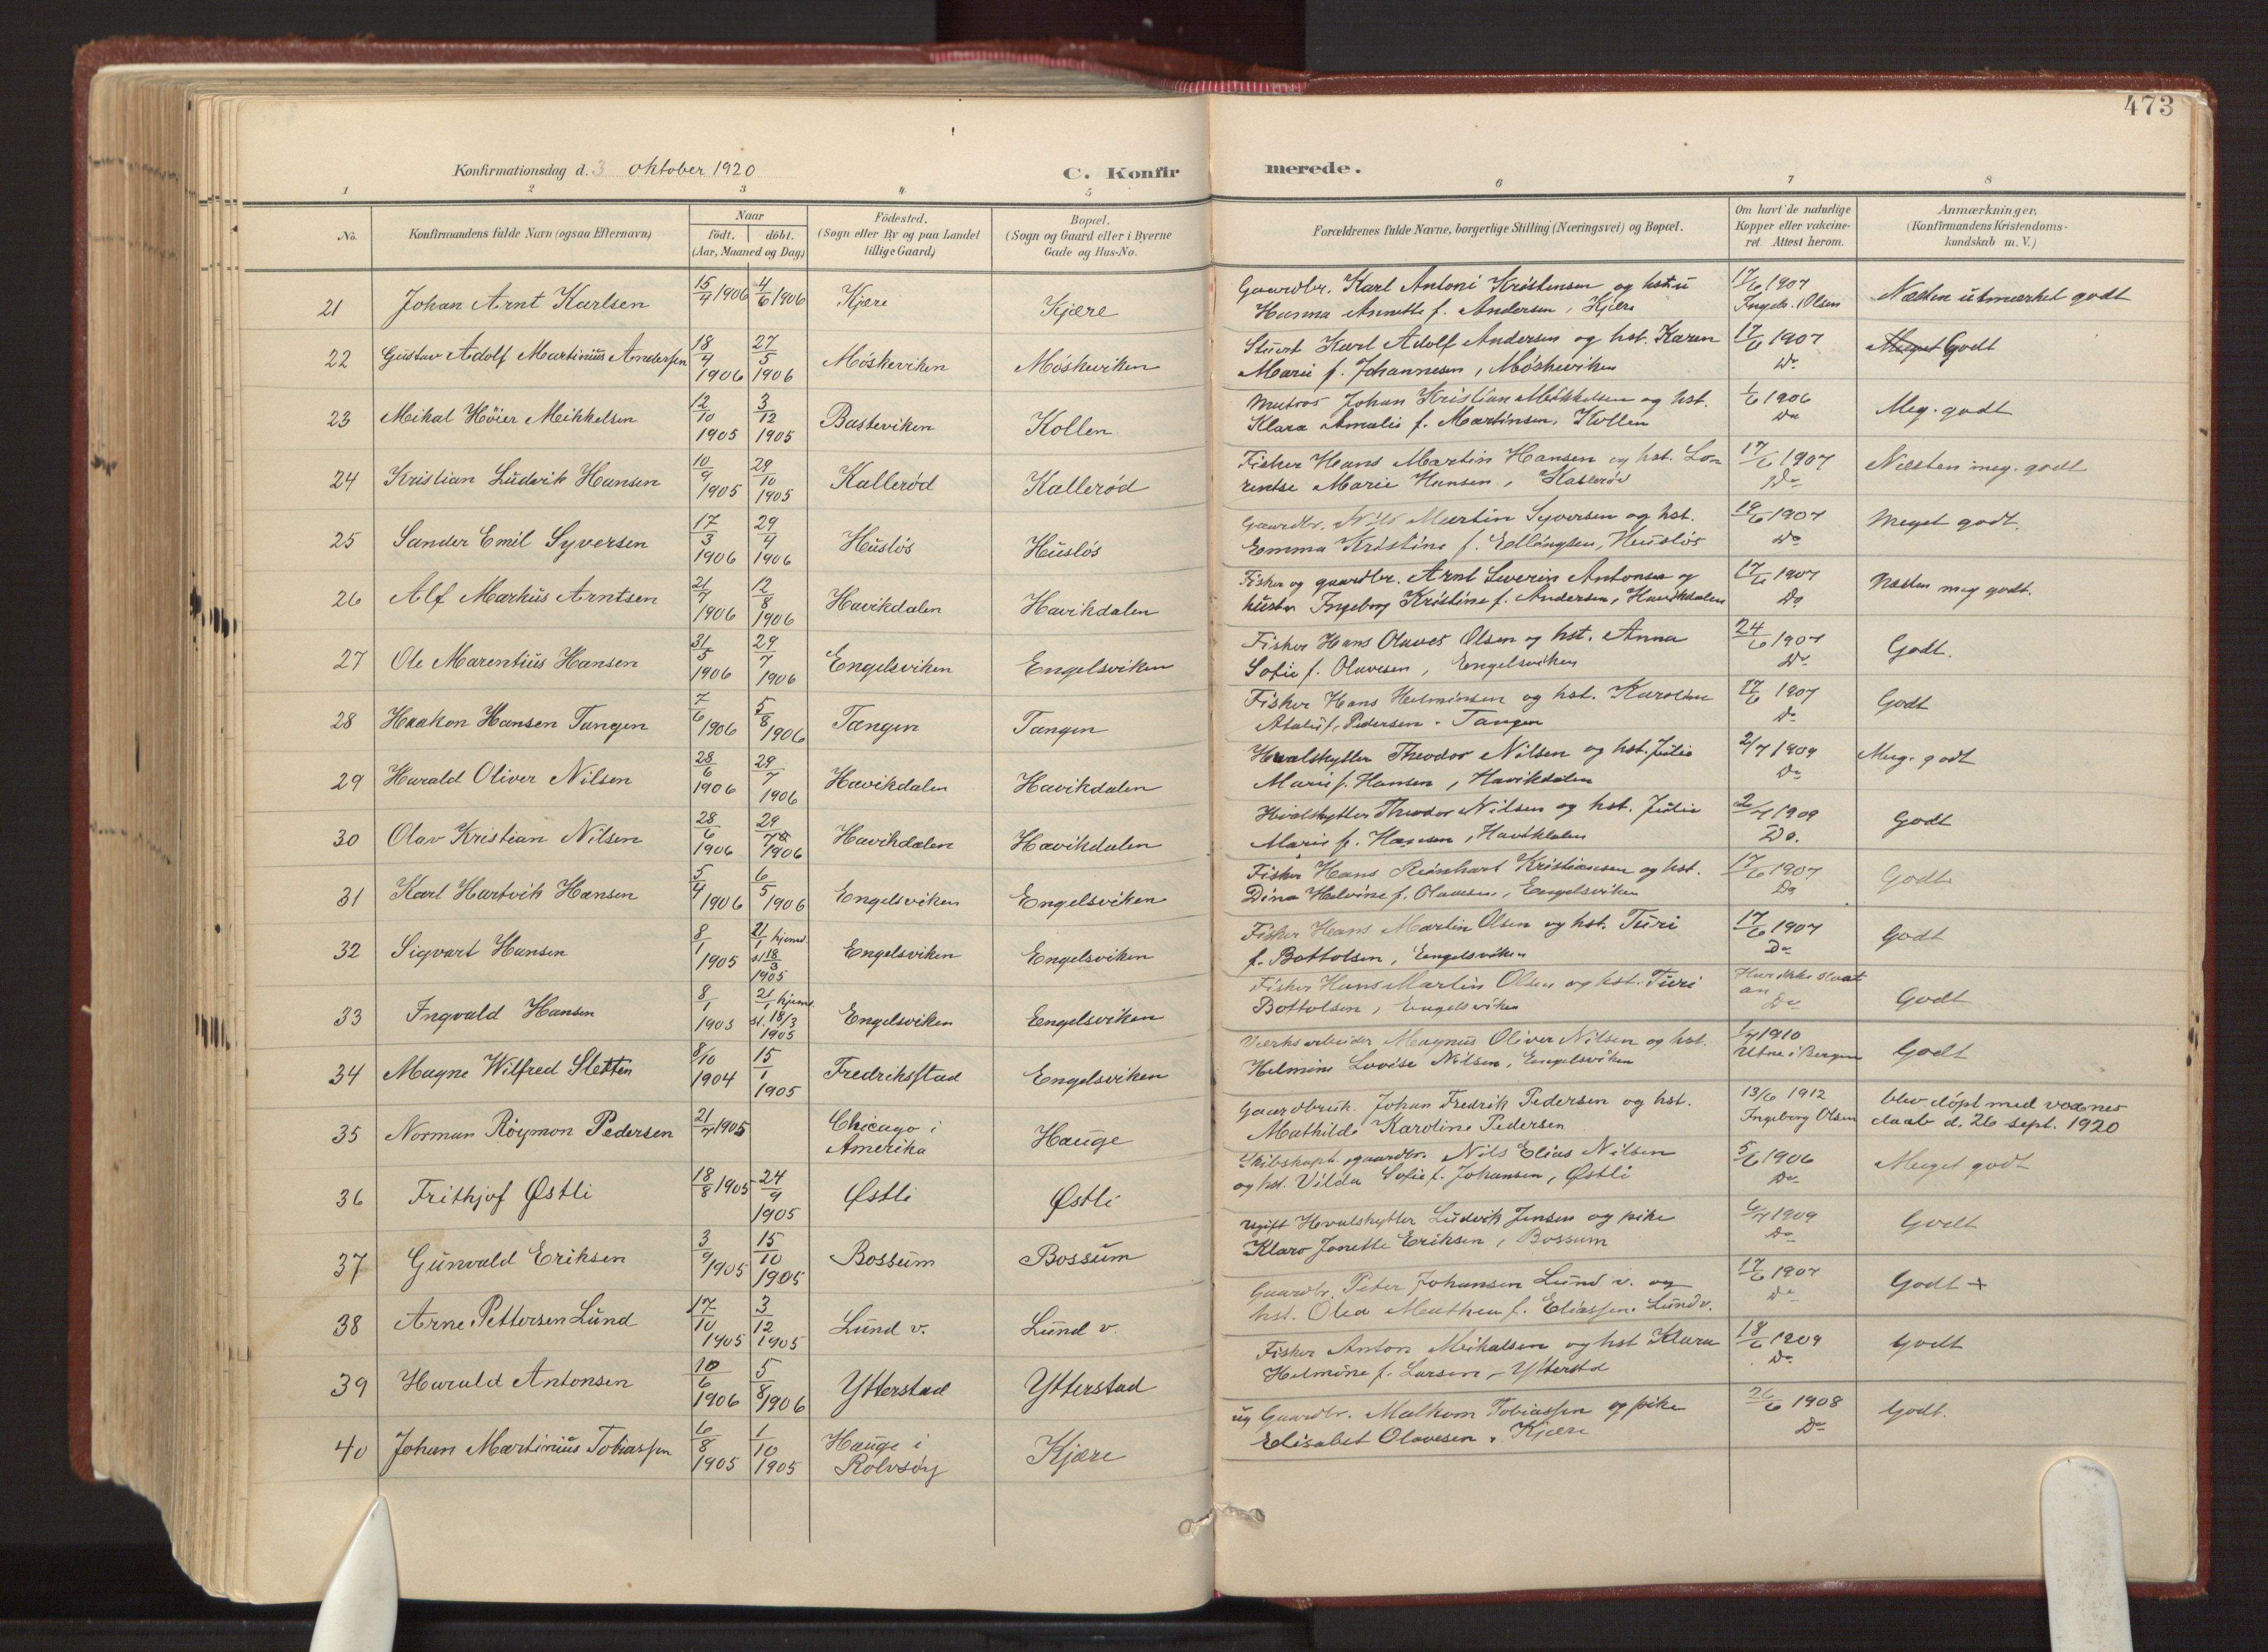 473
Konfirmationsdag d. 3 oktober 1920
C. Konfirmerede.
1 2 3 4 5 6 7 8
No.
Konfirmandens fulde Navn (ogsaa Efternavn)
Naar
födt. döbt.
(Aar, Maaned og Dag)
Födested.
(Sogn eller By og paa Landet
tillige Gaard)
Bopæl.
(Sogn og Gaard eller i Byerne
Gade og Hus-No.
Forældrenes fulde Navne, borgerlige Stilling (Næringsvei) og Bopæl.
Om havt de naturlige
Kopper eller vakcine-
ret. Attest herom.
Anmærkninger.
(Konfirmandens Kristendoms-
kundskab m. V.)
21 Johan Arnt Karlsen 15/4 1906 4/6 1906 Kjære Kjære Gaardbr. Karl Antoni Kristensen og hstu
Hanna Annette f. Andersen, Kjære 17/6 1907
Ingeb. Olsen Næsten utmærket godt
22 Gustav Adolf Martinius Anderssen 18/4 1906 27/5 1906 Móskeviken Móskeviken Stuert Karl Adolf Andersen og hst. Karen
Marie f. Johannesen, Móskeviken 17/6 1907
Do Meget Godt
23 Mikal Höier Mikkelsen 12/10 1905 3/12 1905 Basteviken Kollen Matros Johan Kristian Mikkelsen og hst.
Klara Amalie f. Martinsen, Kollen 1/6 1906
Do Meg. godt
24 Kristian Ludvik Hansen 10/9 1905 29/10 1905 Kallerød Kallerød Fisker Hans Martin Hansen og hst. Lo-
rentse Marie Hansen, Kallerød 17/6 1907
Do Næsten meg. godt
25 Sander Emil Syversen 17/3 1906 29/4 1906 Huslós Huslós Gaardbr. Nils Martin Syversen og hst.
Emma Kristine f. Ellingsen, Huslós 19/6 1907
Do Meget godt.
26 Alf Markus Arntsen 21/7 1906 12/8 1906 Havikdalen Havikdalen Fisker og gaardbr. Arnt Severin Antonsen og
hustru Ingeborg Kristine f. Andersen, Havikdalen 17/6 1907
Do Næsten meg godt.
27 Ole Marentius Hansen 31/5 1906 29/7 1906 Engelsviken Engelsviken Fisker Hans Olaves Olsen og hst. Anna
Sofie f. Olavesen, Engelsviken 24/6 1907
Do Godt.
28 Haakon Hansen Tangen 7/6 1906 5/8 1906 Tangen Tangen Fisker Hans Helminsen og hst. Karoline
f. Pedersen. Tangen 17/6 1907
Do Godt
29 Harald Oliver Nilsen 28/6 1906 29/7 1906 Havikdalen Havikdalen Hvalskytter Theodor Nilsen og hst. Julie
Marie f. Hansen, Havikdalen 2/7 1909
Do Meg. godt
30 Olav Kristian Nilsen 28/6 1906 29/7 1906 Havikdalen Havikdalen Hvalskytter Theodor Nilsen og hst. Julie
Marie f. Hansen, Havikdalen 2/7 1909
Do. Godt
31 Karl Hartvik Hansen 5/4 1906 6/5 1906 Engelsviken Engelsviken Fisker Hans Reinhart Kristiansen og hst.
Dina Helvine f. Olavesen, Engelsviken 17/6 1907
Do Godt
32 Sigvart Hansen 8/1 1905 21/1 hjemd. st 18/3 1905 Engelsviken Engelsviken Fisker Hans Martin Olsen og hst. Turi
f. Bottolsen, Engelsviken 17/6 1907
Do Godt
33 Ingvald Hansen 8/1 1905 21/1 hjemd. st. 18/3 1905 Engelsviken Engelsviken Fisker Hans Martin Olsen og hst. Turi
Bottolsen, Engelsviken Har ikke slaat
an
Do Godt
34 Magne Wilfred Sletten 8/10 1904 15/1 1905 Fredriksstad Engelsviken Værksarbeider Magnus Oliver Nilsen og hst.
Helmine Lovise Nilsen, Engelsviken 1/7 1910
Utne i Bergen Godt
35 Norman Röymon Pedersen 21/7 1905 Chicago i
Amerika Hauge Gaardbruk. Johan Fredrik Pedersen og hst.
Mathilde Karoline Pedersen 13/6 1912
Ingeborg Olsen blev dópt med voxnes
daab d. 26 sept. 1920
36 Frithjof Østli 18/8 1905 24/9 1905 Østli Østli Skibskapt. gaardbr. Nils Elias Nilsen
og hst. Vilda Sofie f. Johansen, Østli 5/6 1906
Do Meget godt
37 Gunvald Eriksen 3/9 1905 15/10 1905 Bossum Bossum ugift Hvalskytter Ludvik Jensen og pike
Klara Janette Eriksen, Bossum 6/7 1909
Do Godt
38 Arne Pettersen Lund 17/10 1905 3/12 1905 Lund v. Lund v. Gaardbr. Peter Johansen Lund v. og
hst. Olea Mathea f. Eliassen, Lund v. 17/6 1907
Do Godt +
39 Harald Antonsen 10/6 1906 5/8 1906 Ytterstad Ytterstad Fisker Anton Mikalsen og hst Klara
Helmine f. Larsen, Ytterstd 18/6 1909
Do Godt
40 Johan Martinius Tobiassen 6/8 1905 1/10 1905 Hauge i
Rolvsöy Kjære ug Gaardbr. Malkom Tobiassen og pike
Elisabet Olavesen, Kjære 26/6 1908
Do Godt.